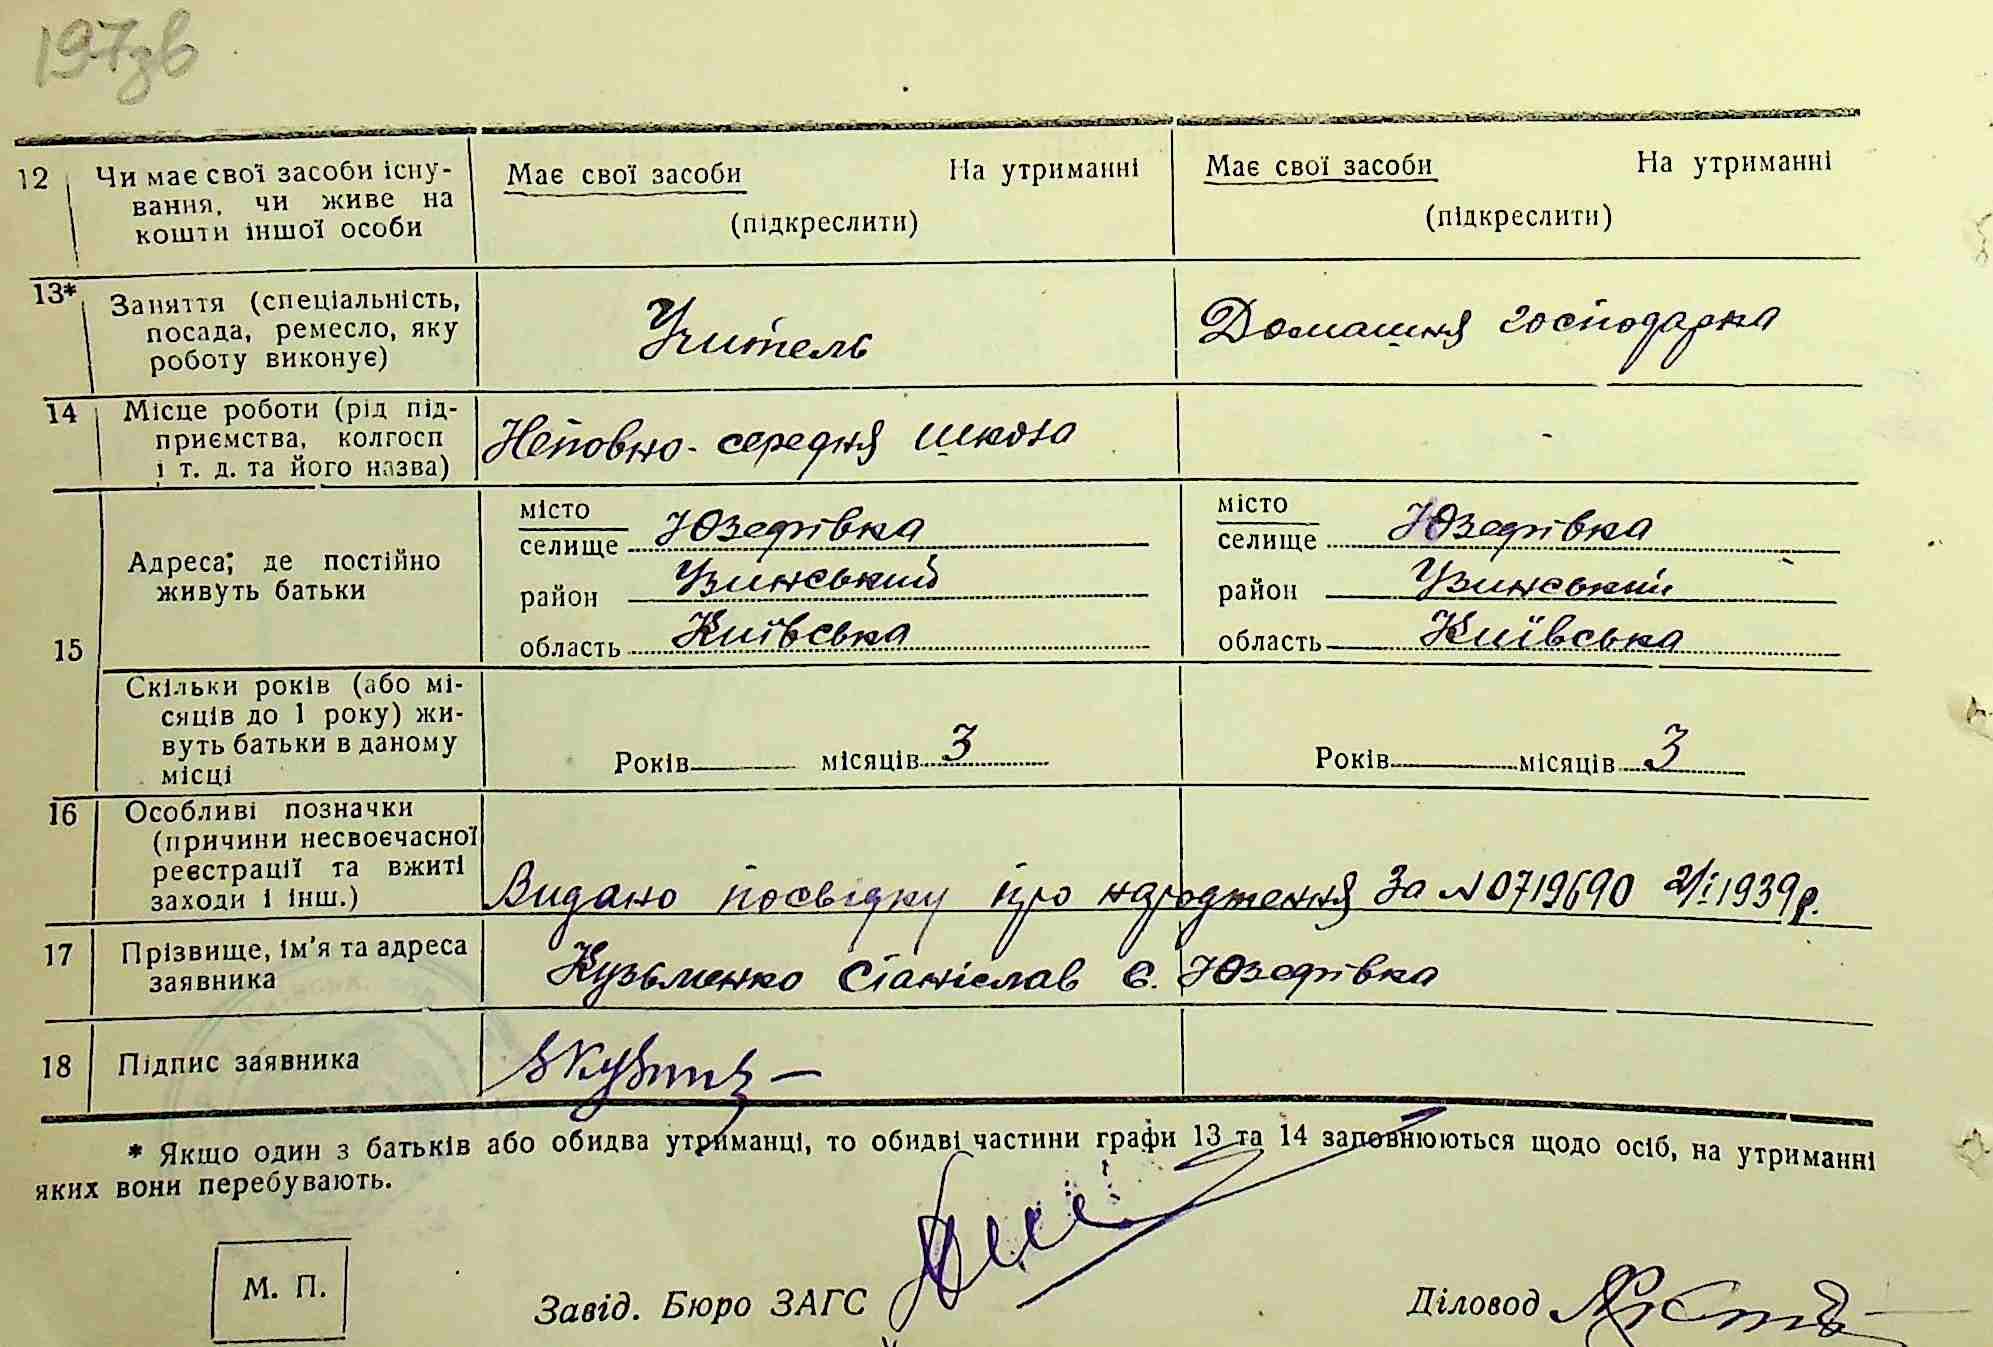 197зв
12 Чи має свої засоби існу-
вання, чи живе на
кошти іншої особи
Має свої засоби На утриманні
(підкреслити)
Має свої засоби На утриманні
(підкреслити)
13* Заняття (спеціальність,
посада, ремесло, яку
роботу виконує)
Учитель
Домашня господарка
14 Місце роботи (рід під-
приємства, колгосп
і т. д. та його назва)
Неповно-середня школа
-
15
Адреса; де постійно
живуть батьки
місто
селище Юзефівка
район Узинський
область Київська
місто
селище Юзефівка
район Узинський
область Київська
Скільки років (або мі-
сяців до 1 року) жи-
вуть батьки в даному
місці
Років місяців 3
Років місяців 3
16 Особливі позначки
(причини несвоєчасної
реєстрації та вжиті
заходи і інш.)
Видано посвідку про народження за N 0719690 2/I 1939р.
17 Прізвище, ім'я та адреса
заявника
Кузьменко Станіслав Є. Юзефівка
18 Підпис заявника
* Якщо один з батьків або обидва утриманці, то обидві частини графи 13 та 14 заповнюються щодо осіб, на утриманні
яких вони перебувають.
М. П.
Завід. Бюро ЗАГС
Діловод